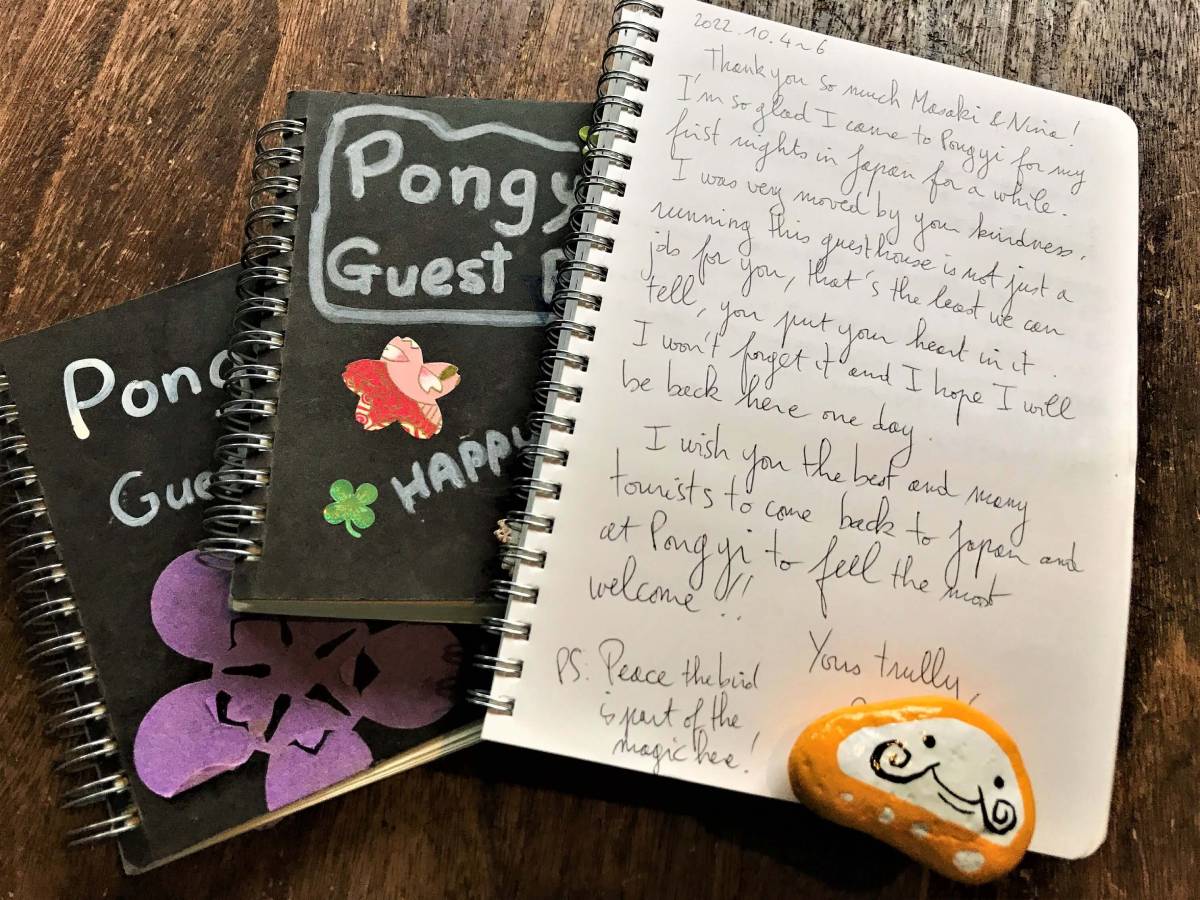 Pong
Gue
Pongy
Guest
HAPPY
2022.10.4~6
Thank you so much Masaki & Nina!
I'm so glad I came to Pongyi for my
first nights in Japan for a while.
I was very moved by your kindness,
running this guesthouse is not just a
job for you, that's the least we can
tell, you put your heart in it.
I won't forget it and I hope I will
be back here one day.
I wish you the best and many
tourists to come back to Japan and
at Pongyi to feel the most
welcome!!
Yours trully,
PS: Peace the bird
is part of the
magic here!